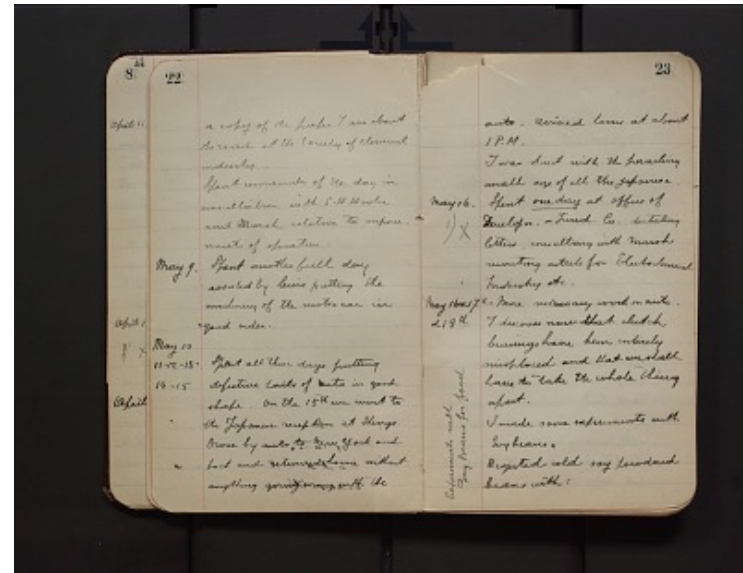 8
April 11
April 1
April
22
a copy of the paper I am about
to read at the Society of Chemical
Industry.
Spent remainder of the day in
consultation with
and Marsh relative to
of operation.
May 9. Spent another full day
assisted by Louis putting the
machinery of the motorcar in
good order.
May 10
11-12-13-
14-15
Spent all these days putting
defective parts of auto in good
shape. On the 15th we went to
the Japanese reception at
by auto, to New York and
back and returned home without
anything going wrong with the
23
auto. arrived home at about
1 P.M.
I was struck with the
small size of all the Japanese.
May 16. Spent one day at offices of
Develop. & Fund. Co. dictating
letters consulting with Marsh
rewriting article for Electrochemical
Industry etc.
1) X
May 16 & 17th
& 18th
More necessary work on auto.
I discover now that clutch
bearings have been entirely
misplaced and that we shall
have to take the whole thing
apart.
I made some experiments with
Soy beans.
Digested cold soy powdered
beans with:
Experiments with
Soy beans for food